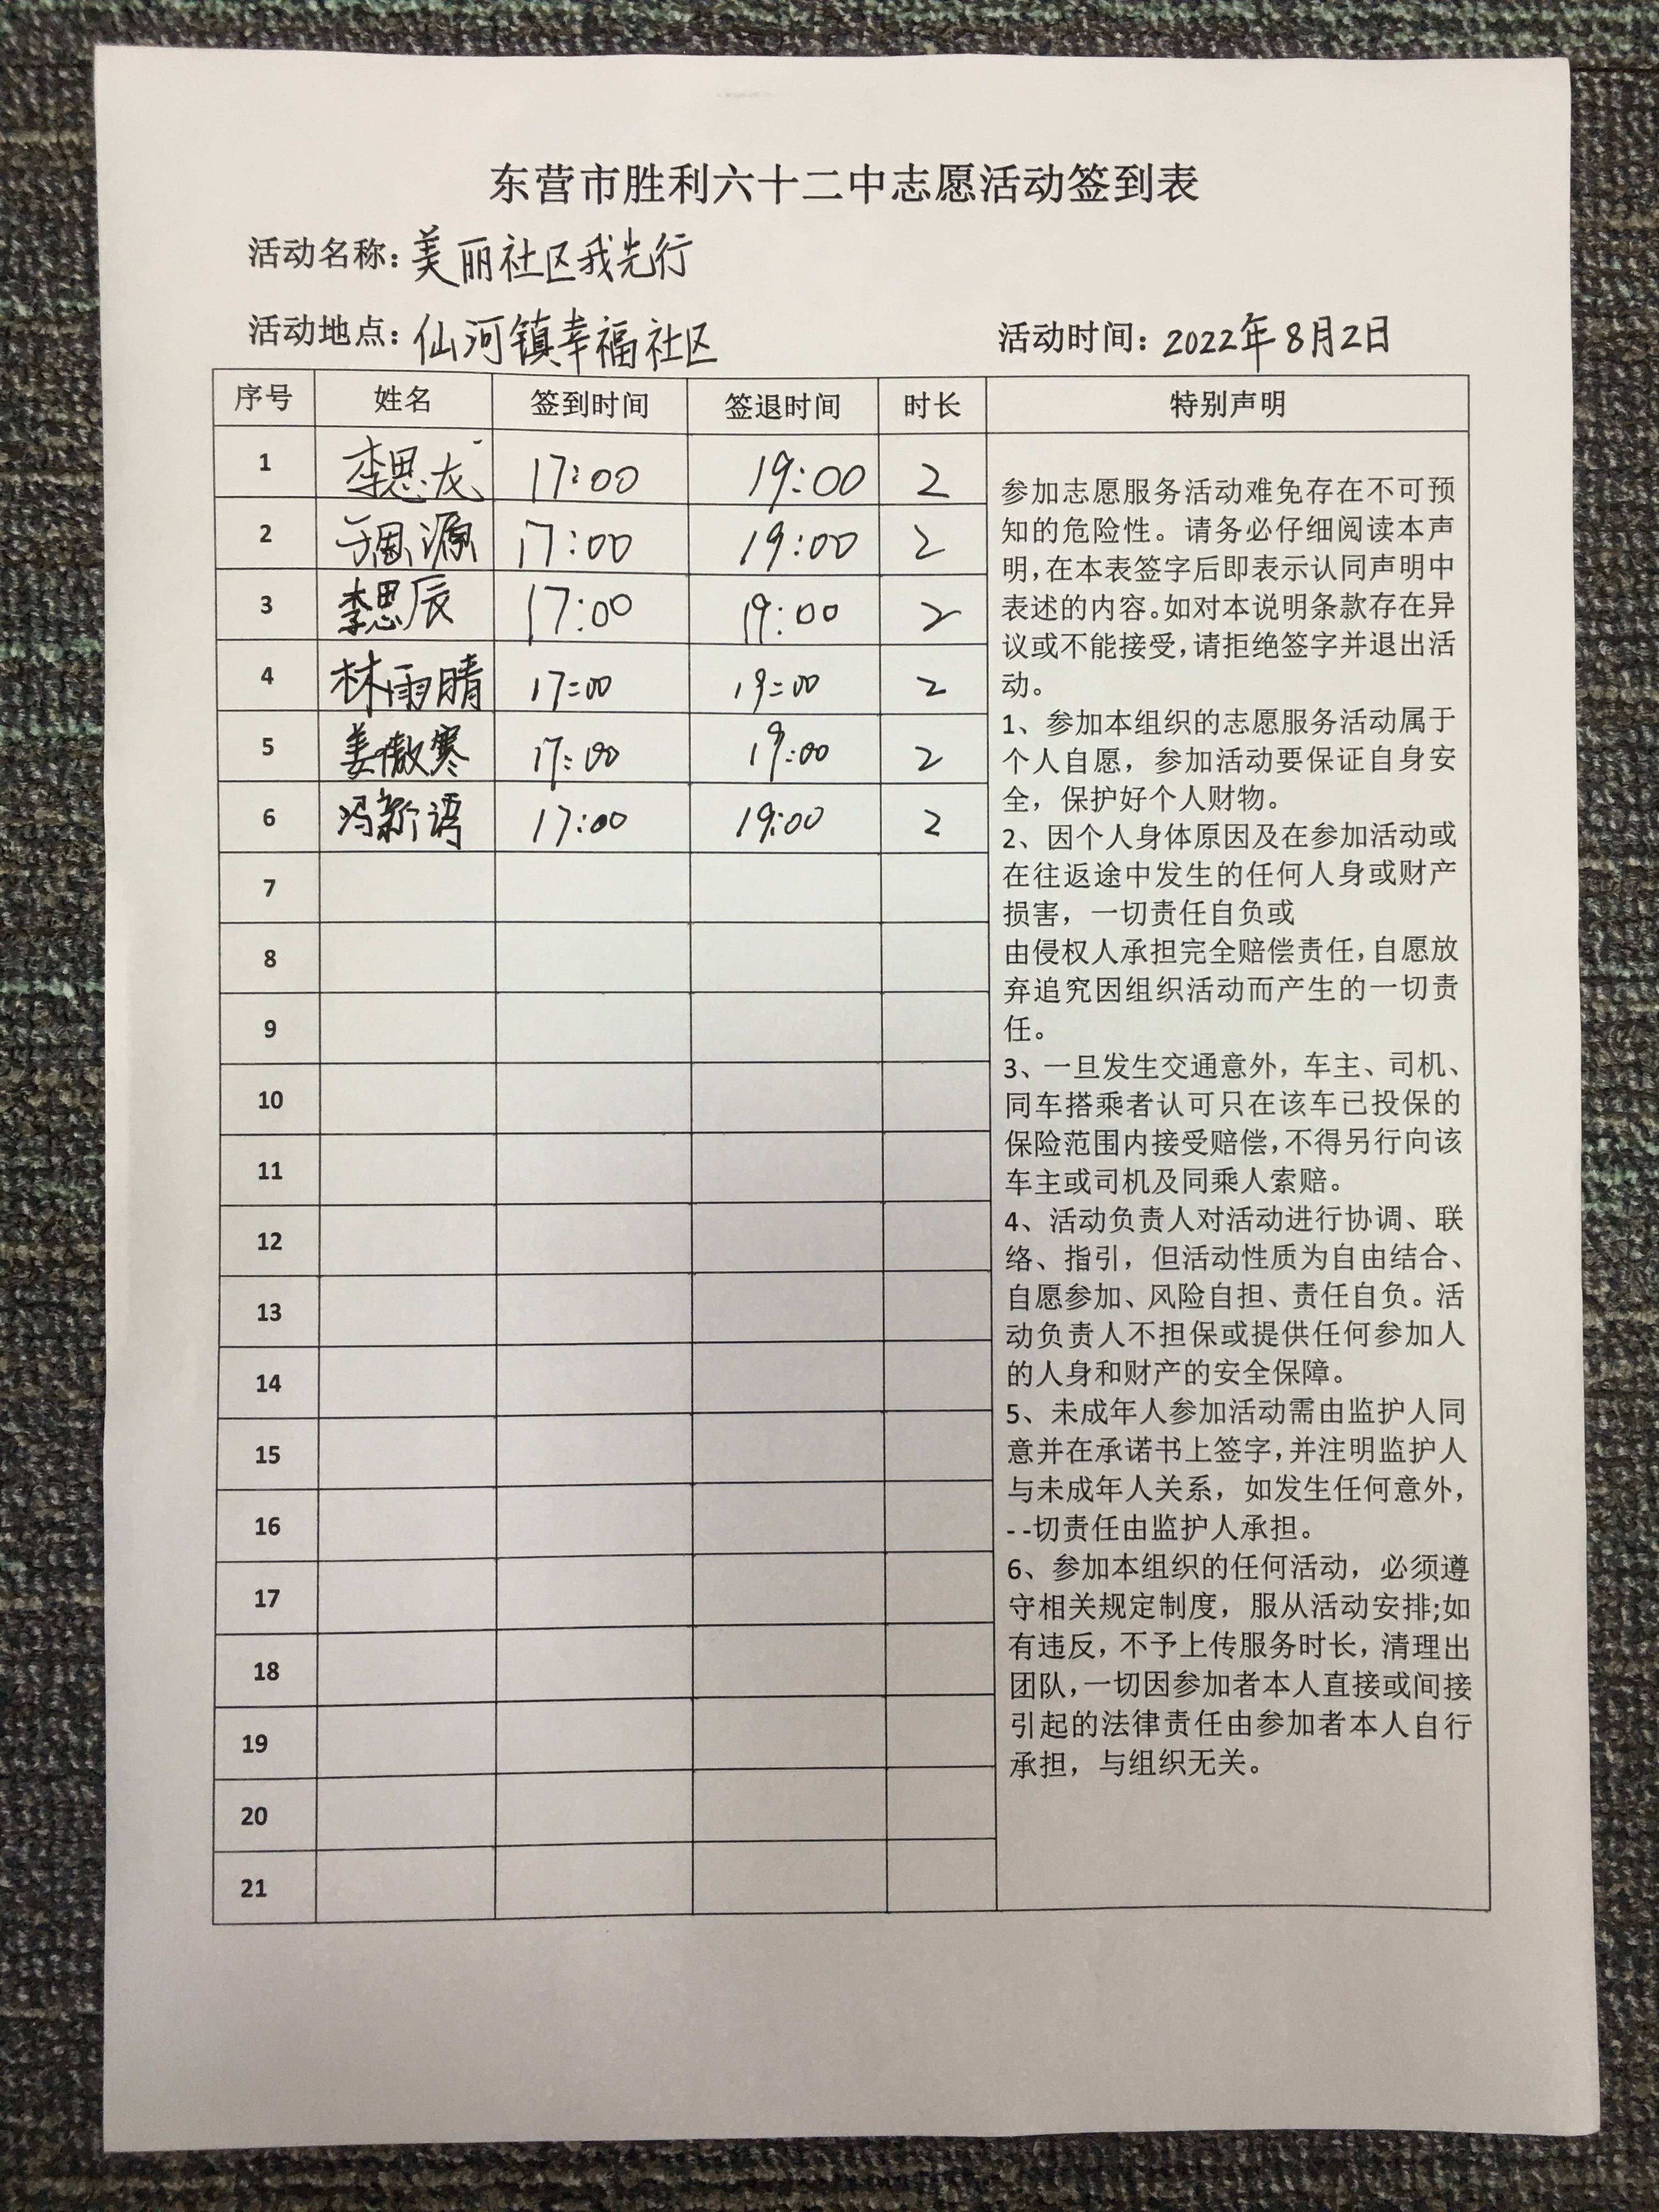 东营市胜利六十二中志愿活动签到表
活动名称：美丽社区我先行
活动地点：仙河镇幸福社区 活动时间：2022年8月2日
序号 姓名 签到时间 签退时间 时长 特别声明
1 李思龙 17:00 19:00 2
2 于恩源 17:00 19:00 2
3 李思辰 17:00 19:00 2
4 林雨晴 17:00 19:00 2
5 姜傲寒 17:00 19:00 2
6 冯新语 17:00 19:00 2
7
8
9
10
11
12
13
14
15
16
17
18
19
20
21
参加志愿服务活动难免存在不可预
知的危险性。请务必仔细阅读本声
明，在本表签字后即表示认同声明中
表述的内容。如对本说明条款存在异
议或不能接受，请拒绝签字并退出活
动。
1、参加本组织的志愿服务活动属于
个人自愿，参加活动要保证自身安
全，保护好个人财物。
2、因个人身体原因及在参加活动或
在往返途中发生的任何人身或财产
损害，一切责任自负或
由侵权人承担完全赔偿责任，自愿放
弃追究因组织活动而产生的一切责
任。
3、一旦发生交通意外，车主、司机、
同车搭乘者认可只在该车已投保的
保险范围内接受赔偿，不得另行向该
车主或司机及同乘人索赔。
4、活动负责人对活动进行协调、联
络、指引，但活动性质为自由结合、
自愿参加、风险自担、责任自负。活
动负责人不担保或提供任何参加人
的人身和财产的安全保障。
5、未成年人参加活动需由监护人同
意并在承诺书上签字，并注明监护人
与未成年人关系，如发生任何意外，
--切责任由监护人承担。
6、参加本组织的任何活动，必须遵
守相关规定制度，服从活动安排;如
有违反，不予上传服务时长，清理出
团队，一切因参加者本人直接或间接
引起的法律责任由参加者本人自行
承担，与组织无关。